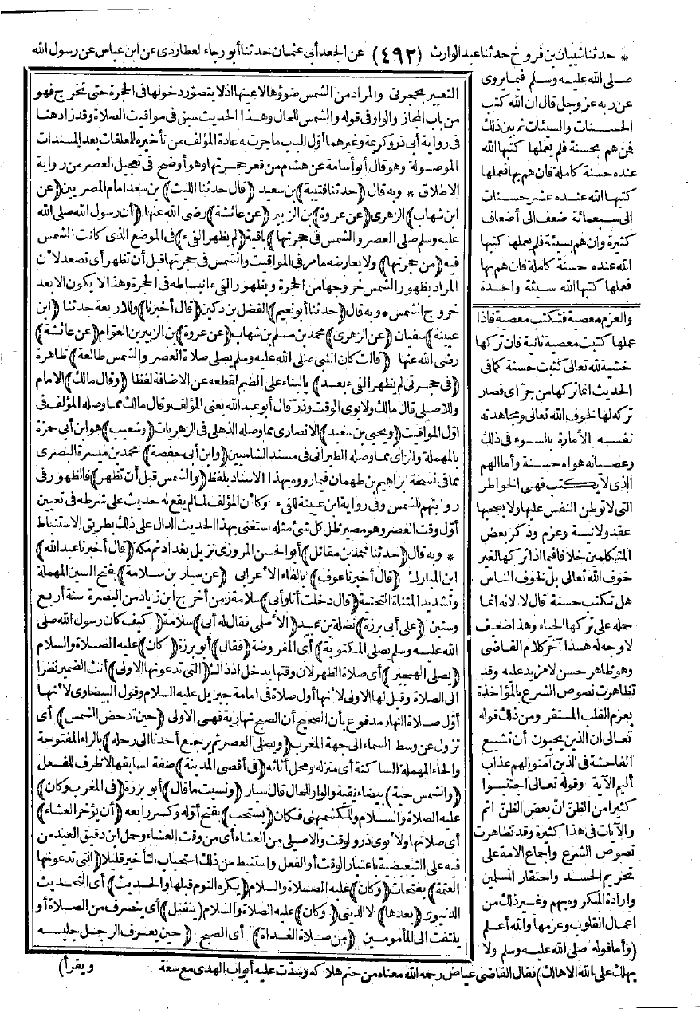 * حدثنا شيبان بن فروخ حدثنا عبد الوارث (٤٩٢) عن الجعد أبي عثمان حدثنا أبو رجاء العطاردي عن ابن عباس عن رسول الله
صلى الله عليه وسلم فيما يروى
عن ربه عز وجل قال ان الله كتب
الحسنات والسيئات ثم بين ذلك
فمن هم بحسنة فلم يعملها كتبها الله
عنده حسنة كاملة فان هم بها فعملها
كتبها الله عنده عشر حسنات
الى سبعمائة ضعف الى أضعاف
كثيرة وان هم بسيئة فلم يعملها كتبها
الله عنده حسنة كاملة فان هم بها
فعملها كتبها الله سيئة واحدة
والعزم معصية فتكتب معصية فاذا
عملها كتبت معصية ثانية فان تركها
خشية لله تعالى كتبت حسنة كما في
الحديث انما تركها من جراي فصار
تركه لها لخوف الله تعالى ومجاهدته
نفسه الأمارة بالسوء في ذلك
وعصيانه هواه حسنة وأما الهم
الذي لا يكتب فهي الخواطر
التي لا توطن النفس عليها ولا يصحبها
عقد ولا نية وعزم وذكر بعض
المتكلمين خلافا فيما اذا تركها لغير
خوف الله تعالى بل لخوف الناس
هل تكتب حسنة قال لا لانه انما
حمله على تركها الحياء وهذا ضعيف
لا وجه له هذا آخر كلام القاضي
وهو ظاهر حسن لا مزيد عليه وقد
تظاهرت نصوص الشرع بالمؤاخذة
بعزم القلب المستقر ومن ذلك قوله
تعالى ان الذين يحبون أن تشيع
الفاحشة في الذين آمنوا لهم عذاب
أليم الآية وقوله تعالى اجتنبوا
كثيرا من الظن ان بعض الظن اثم
والآيات في هذا كثيرة وقد تظاهرت
نصوص الشرع واجماع الامة على
تحريم الحسد واحتقار المسلمين
وارادة المكر وه بهم وغير ذلك من
اعمال القلوب وعزمها والله أعلم
(وأما قوله صلى الله عليه وسلم ولا
يهلك على الله الا هالك) فقال القاضي عياض رحمه الله معناه من حتم هلاكه وسدت عليه أبواب الهدى مع سعة
التعبير بحجرتي والمراد من الشمس ضوؤها لا عينها اذ لا يتصور دخولها في الحجرة حتى تخرج فهو
من باب المجاز والواو في قوله والشمس للحال وهذا الحديث سبق في مواقيت الصلاة وقد زاد هنا
في رواية أبي ذر وكريمة وغيرهما أول الباب ما جرت به عادة المؤلف من تأخيره للمعلقات بعد المسندات
الموصولة وهو قال أبو أسامة عن هشام من قعر حجرتها وهو أوضح في تعجيل العصر من رواية
الاطلاق * وبه قال (حدثنا قتيبة) بن سعيد (قال حدثنا الليث) بن سعد امام المصريين (عن
ابن شهاب) الزهري (عن عروة) بن الزبير (عن عائشة) رضي الله عنها (أن رسول الله صلى الله
عليه وسلم صلى العصر والشمس في حجرتها) باقية (لم يظهر الفيء) في الموضع الذي كانت الشمس
فيه (من حجرتها) ولا يعارضه ما مر في المواقيت والشمس في حجرتها قبل أن تظهر أي تصعد لأن
المراد بظهور الشمس خروجها من الحجرة وبظهور الفيء انبساطه في الحجرة وهذا لا يكون الا بعد
خروج الشمس * وبه قال (حدثنا أبو نعيم) الفضل بن دكين (قال أخبرنا) وللاربعة حدثنا (ابن
عيينة) سفيان (عن الزهري) محمد بن مسلم بن شهاب (عن عروة) بن الزبير بن العوام (عن عائشة)
رضي الله عنها (قالت كان النبي صلى الله عليه وسلم يصلي صلاة العصر والشمس طالعة) ظاهرة
(في حجرتي لم يظهر الفيء بعد) بالبناء على الضم لقطعه عن الاضافة لفظا (وقال مالك) الامام
وللاصيلي قال مالك ولابوي الوقت وذر قال أبو عبد الله يعني المؤلف وقال مالك مما وصله المؤلف في
أول المواقيت (ويحيى بن سعيد) الانصاري مما وصله الذهلي في الزهريات (وشعيب) هو ابن أبي حمزة
بالمهملة والزاي مما وصله الطبراني في مسند الشاميين (وابن أبي حفصة) محمد بن ميسرة البصري
مما في نسخة ابراهيم بن طهمان فيما رووه بهذا الاسناد بلفظ (والشمس قبل أن تظهر) فالظهور في
روايتهم للشمس وفي رواية ابن عيينة للفيء وكأن المؤلف لما لم يقع له حديث على شرطه في تعيين
أول وقت العصر وهو مصير ظل كل شيء مثله استغنى بهذا الحديث الدال على ذلك بطريق الاستنباط
* وبه قال (حدثنا محمد بن مقاتل) أبو الحسن المروزي نزيل بغداد ثم مكة (قال أخبرنا عبد الله)
ابن المبارك (قال أخبرنا عوف) بالفاء الأعرابي (عن سيار بن سلامة) بفتح السين المهملة
وتشديد المثناة التحتية (قال دخلت أنا وأبي) سلامة زمن أخرج ابن زياد من البصرة سنة أربع
وستين (على أبي برزة) نضلة بن عبيد (الأسلمي فقال له أبي) سلامة (كيف كان رسول الله صلى
الله عليه وسلم يصلي المكتوبة) أي المفروضة (فقال) أبو برزة (كان) عليه الصلاة والسلام
(يصلي الهجير) أي صلاة الظهر لان وقتها يدخل اذ ذاك (التي تدعونها الاولى) أنث الضمير نظرا
الى الصلاة وقيل لها الاولى لأنها أول صلاة في امامة جبريل عليه السلام وقول البيضاوي لأنها
أول صلاة النهار مدفوع بأن الصحيح أن الصبح نهارية فهي الاولى (حين تدحض الشمس) أي
تزول عن وسط السماء الى جهة المغرب (ويصلي العصر ثم يرجع أحدنا الى رحله) بالراء المفتوحة
والحاء المهملة الساكنة أي منزله ومحل أثاثه (في أقصى المدينة) صفة لسابقه لا ظرف للفعل
(والشمس حية) بيضاء نقية والواو للحال قال سيار (ونسيت ما قال) أبو برزة (في المغرب وكان)
عليه الصلاة والسلام وللكشميهني فكان (يستحب) بفتح أوله وكسر رابعه (أن يؤخر العشاء)
أي صلاتها ولابوي ذر والوقت والاصيلي من العشاء أي من وقت العشاء وحمل ابن دقيق العيد من
فيه على التبعيضية باعتبار الوقت أو الفعل واستنبط من ذلك استحباب التأخير قليلا (التي تدعونها
العتمة) بفتحات (وكان) عليه الصلاة والسلام (يكره النوم قبلها والحديث) أي التحديث
الدنيوي (بعدها) لا الديني (وكان) عليه الصلاة والسلام (ينفتل) أي ينصرف من الصلاة أو
يلتفت الى المأمومين (من صلاة الغداة) أي الصبح (حين يعرف الرجل جليسه
ويقرأ)